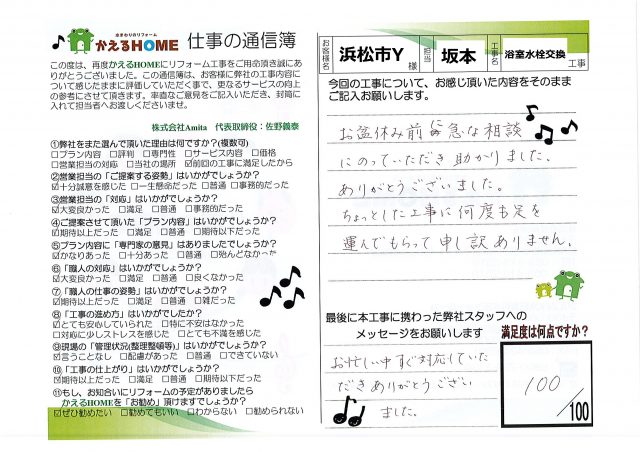 水まわりのリフォーム
かえるHOME 仕事の通信簿
この度は、再度かえるHOMEにリフォーム工事をご用命頂き誠にあ
りがとうございました。この通信簿は、お客様に弊社の工事内容に
ついて感じたままに評価していただく事で、更なるサービスの向上
の参考にさせて頂きます。率直なご意見をご記入いただき、封筒に
入れて担当者へお渡しくださいませ。
株式会社Amita 代表取締役：佐野義泰
①弊社をまた選んで頂いた理由は何ですか?(複数可)
□プラン内容 □評判 □専門性 □サービス内容 □価格
□営業担当の対応 □当社の場所 ☑前回の工事に満足したから
②営業担当の「ご提案する姿勢」はいかがでしょうか?
☑十分誠意を感じた □一生懸命だった □普通 □事務的だった
③営業担当の「対応」はいかがでしょうか?
☑大変良かった □満足 □普通 □事務的だった
④ご提案させて頂いた「プラン内容」はいかがでしょうか?
☑期待以上だった □満足 □普通 □期待以下だった
⑤プラン内容に「専門家の意見」はありましたでしょうか?
☑かなりあった □十分あった □普通 □殆んどなかった
⑥「職人の対応」はいかがでしょうか?
☑大変良かった □満足 □普通 □良くなかった
⑦「職人の仕事の姿勢」はいかがでしょうか?
☑期待以上だった □満足 □普通 □雑だった
⑧「工事の進め方」はいかがでしたか?
☑とても安心していられた □特に不安はなかった
□対応に少しストレスを感じた □とても不満を感じた
⑨現場の「管理状況(整理整頓等)」はいかがでしょうか?
☑言うことなし □配慮があった □普通 □できていない
⑩「工事の仕上がり」はいかがでしょうか?
☑期待以上だった □満足 □普通 □期待以下だった
⑪もし、お知合いにリフォームの予定がありましたら
かえるHOMEを「お勧め」頂けますでしょうか?
☑ぜひ勧めたい □勧めてもいい □わからない □勧められない
お客様名 浜松市Y 様 担当 坂本 工事名 浴室水栓交換 工事
今回の工事について、お感じ頂いた内容をそのまま
ご記入お願いします。
お盆休み前に急な相談
にのっていただき助かりました。
ありがとうございました。
ちょっとした工事に何度も足を
運んでもらって申し訳ありません。
最後に本工事に携わった弊社スタッフへの
メッセージをお願いします
お忙しい中すぐ対応していた
だきありがとうござい
ました。
満足度は何点ですか?
100
/100